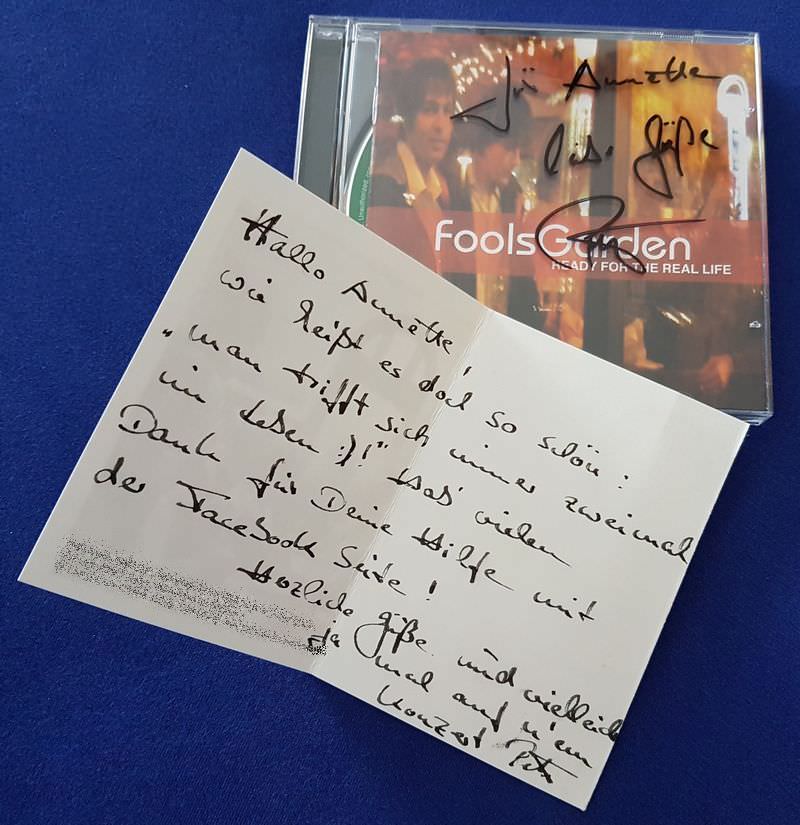 Für Annette
liebe Grüße
FoolsGarden
READY FOR THE REAL LIFE
Hallo Annette!
wie heißt es doch so schön:
"man trifft sich immer zweimal
im Leben :)!" vielen
Dank für Deine Hilfe mit
der Facebook Seite!
Herzliche Grüße und vielleicht
mal auf n'em
Konzert Peter